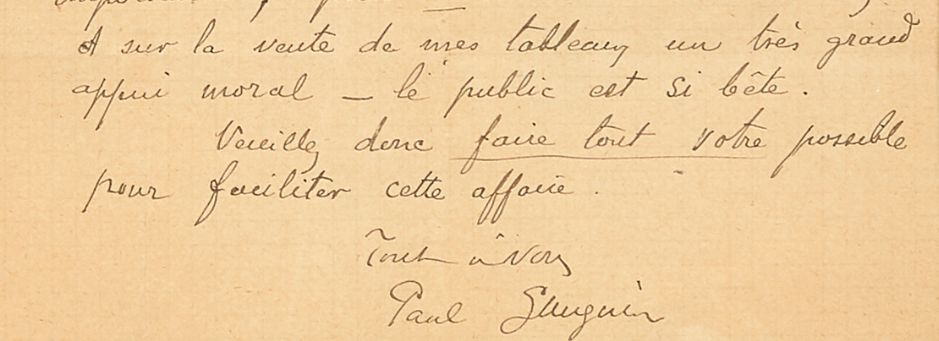 et sur la vente de mes tableaux un très grand
appui moral — le public est si bête.
Veuillez donc faire tout votre possible
pour faciliter cette affaire.
Tout à vous
Paul Gauguin